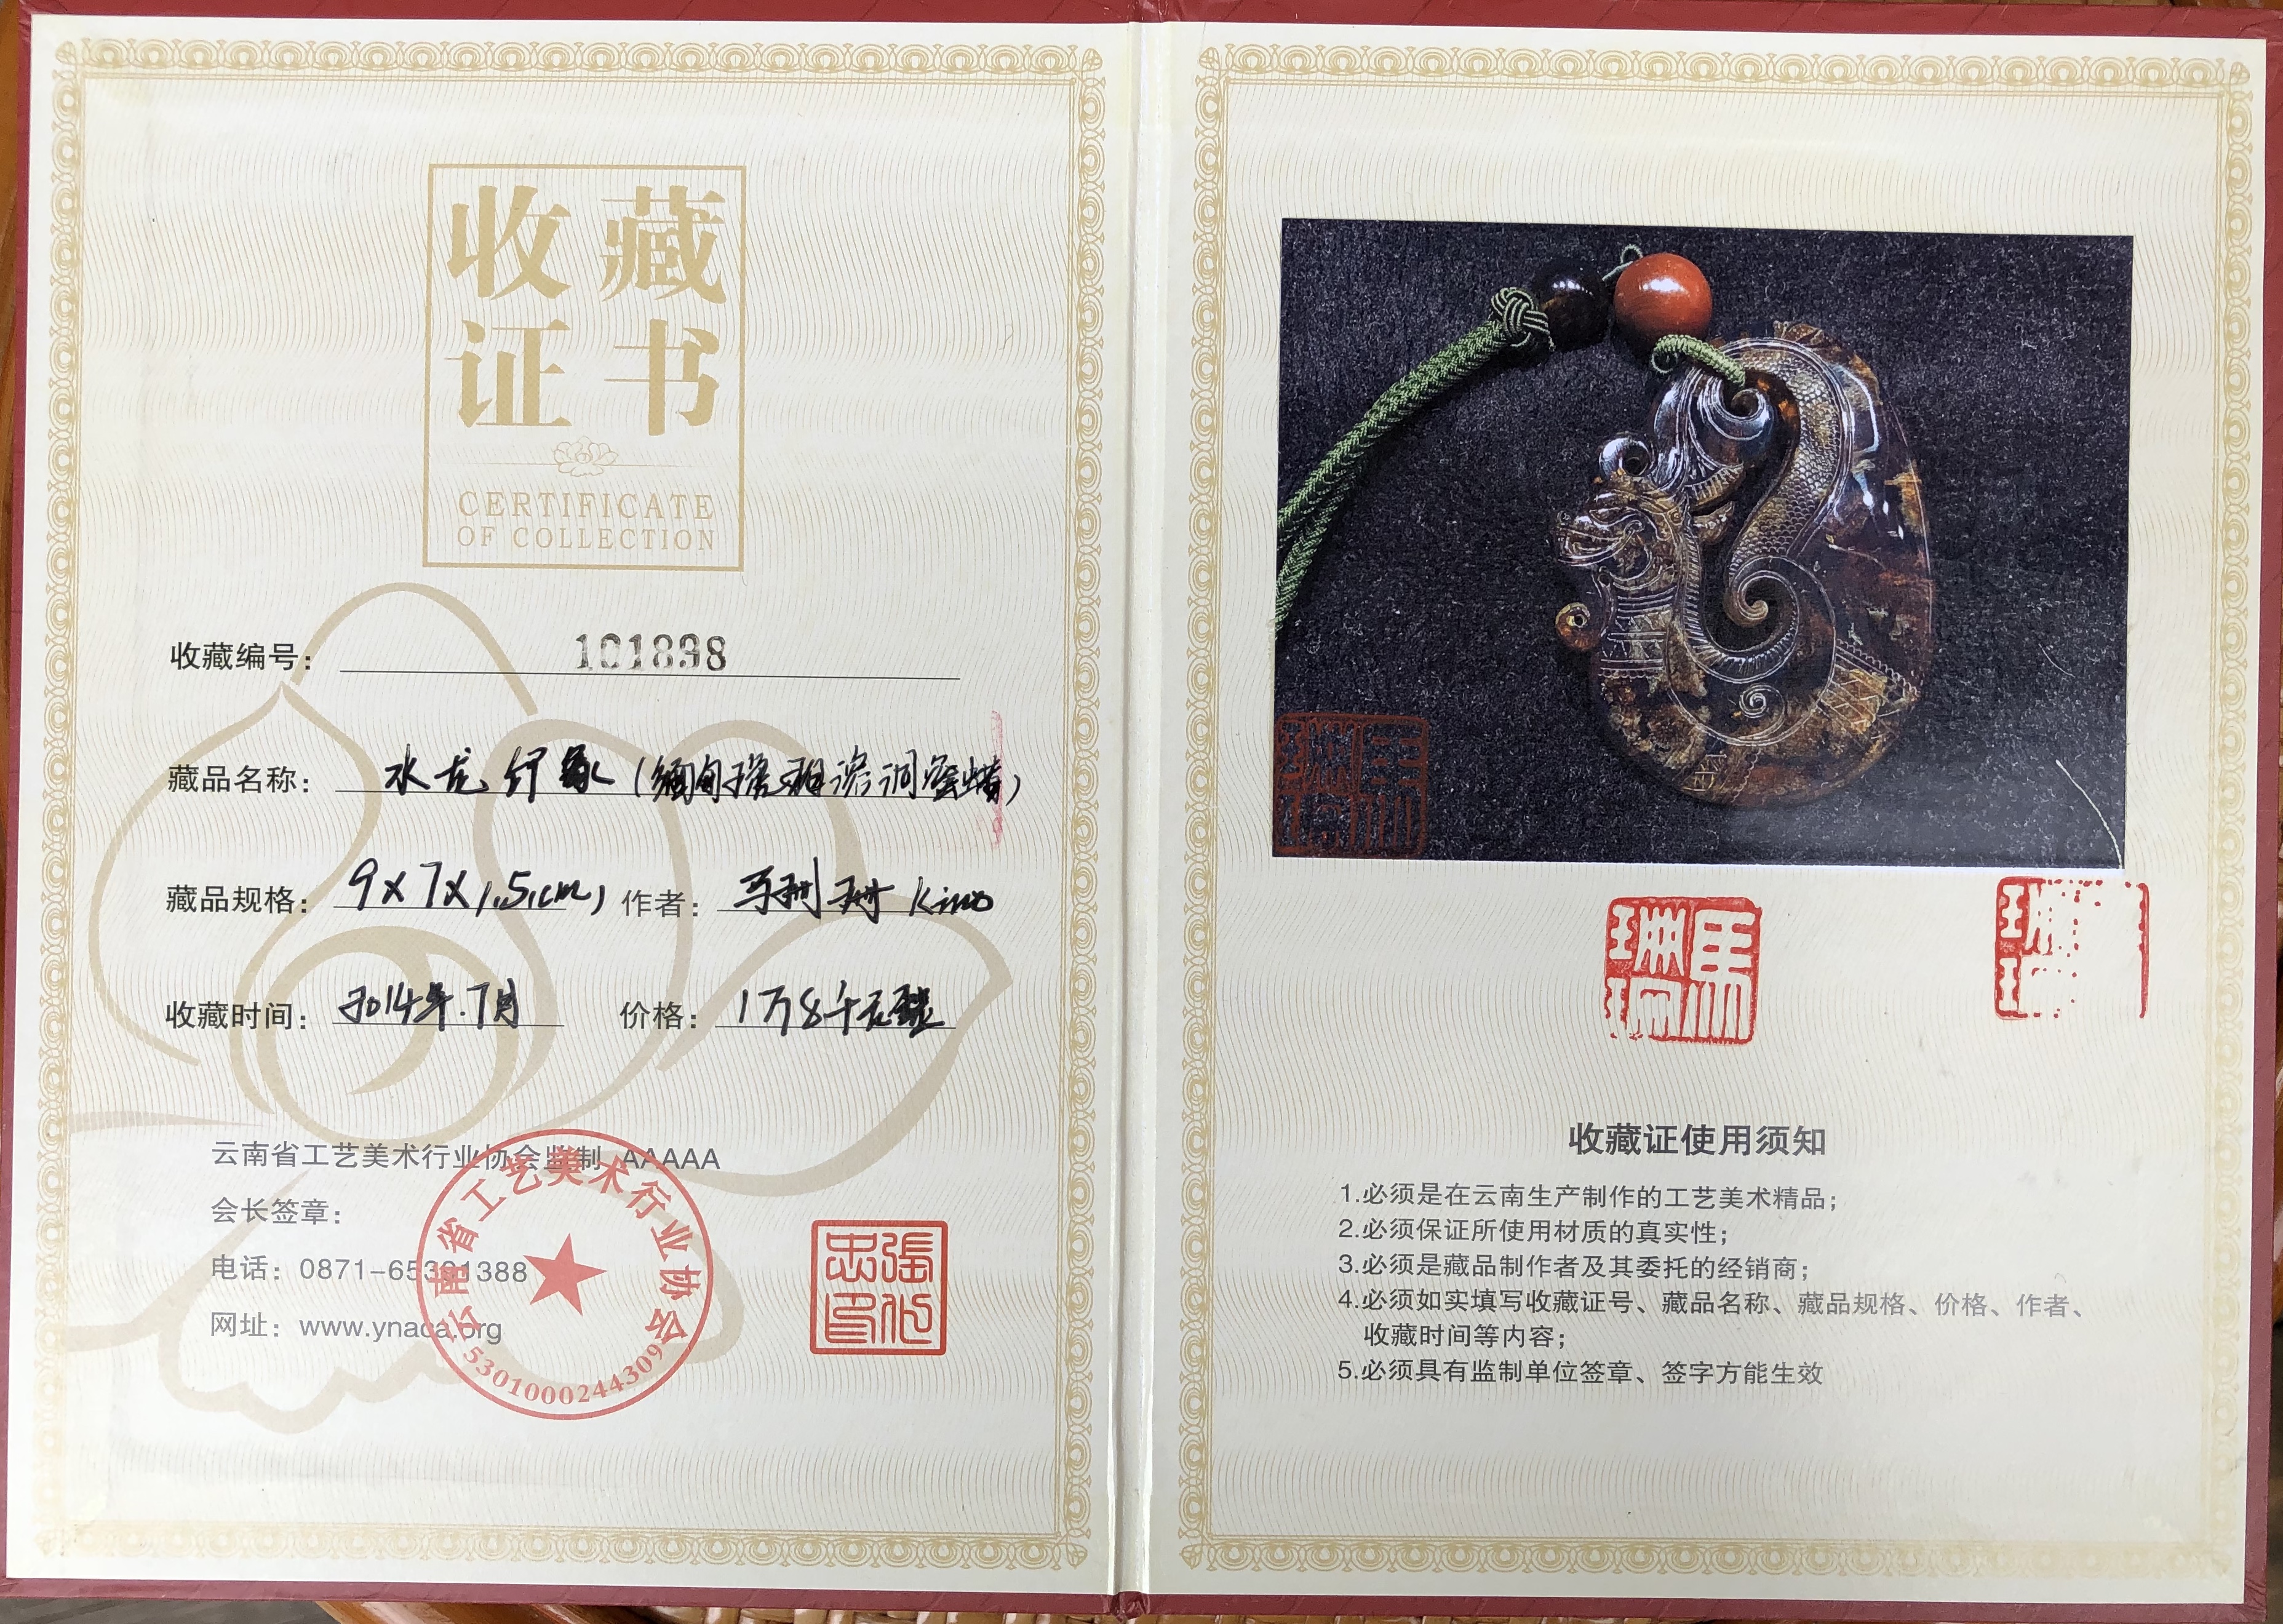 收藏
证书
CERTIFICATE
OF COLLECTION
收藏编号： 101898
藏品名称： 水龙印象(缅甸 洞蜜蜡)
藏品规格： 9x7x1.5cm) 作者： 马琳珊 Kino
收藏时间： 2014年.7月 价格： 1万8千元整
云南省工艺美术行业协会监制 AAAAA
会长签章：
电话：0871-65321388
网址：www.ynaca.org
云南省工艺美术行业协会
5301000244309
收藏证使用须知
1.必须是在云南生产制作的工艺美术精品；
2.必须保证所使用材质的真实性；
3.必须是藏品制作者及其委托的经销商；
4.必须如实填写收藏证号、藏品名称、藏品规格、价格、作者、
收藏时间等内容；
5.必须具有监制单位签章、签字方能生效